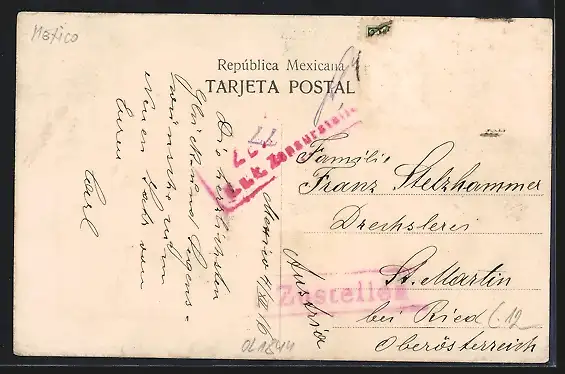 Mexico
República Mexicana
TARJETA POSTAL
77
K.u.k. Zensurstelle
Mexico 1/XII 16
Die herzlichsten
Glück und Segens-
wünsche zum
neuen Jahr von
Euren
Carl
Familie
Franz Stelzhammer
Drechslerei
St. Martin
bei Ried
Oberösterreich
Austria
Zustellen
C.12
021844